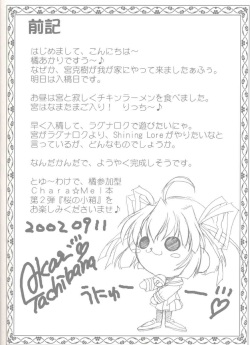 前記
はじめまして、こんにちは～
橘あかりですう～♪
なぜか、宮克樹が我が家にやって来ましたぁふぅ。
明日は入稿日です。
お昼は宮と寂しくチキンラーメンを食べました。
宮はなまたまご入り！　りっち～♪
早く入稿して、ラグナロクで遊びたいにゃ。
宮がラグナロクより、Shining Loreがやりたいなと
言っているが、どんなものでしょうか。
なんだかんだで、ようやく完成しそうです。
とゆ～わけで、橘参加型
Chara☆Mel本
第2弾『桜の小箱』を
お楽しみくださいませ♪
20020911
Akari
Tachibana
うにゅー